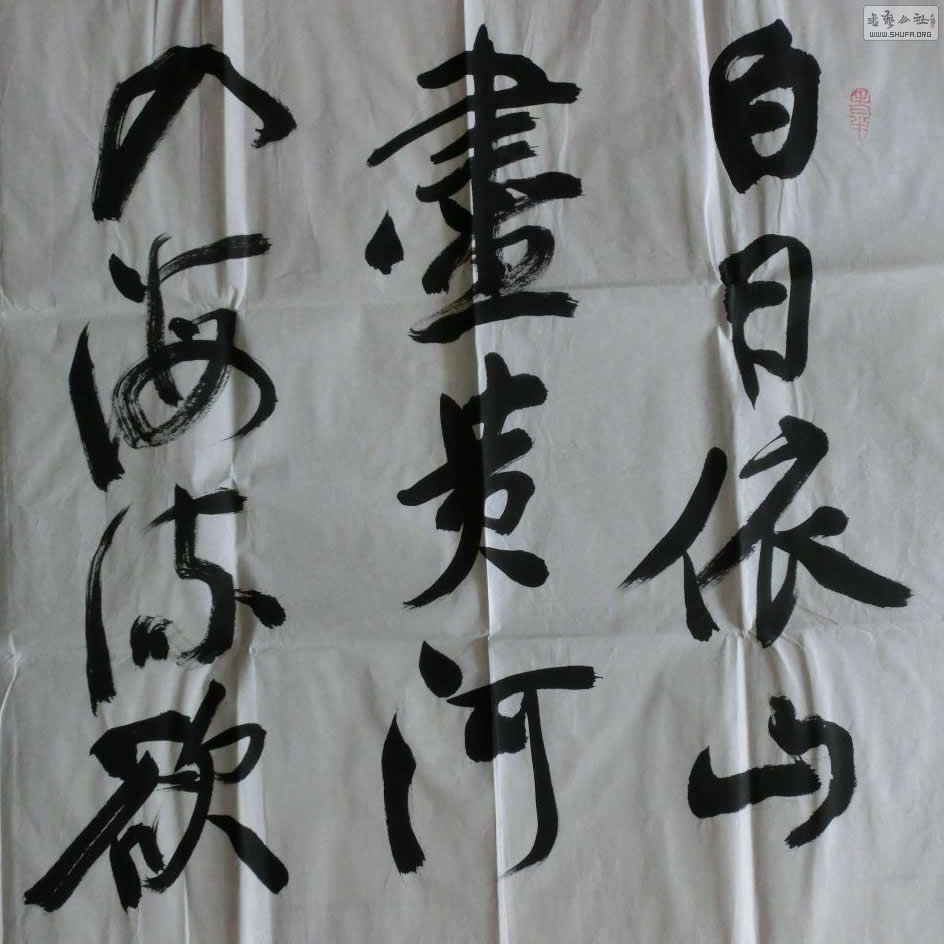 白日依山
盡黄河
入海流欲
書藝公社
WWW.SHUFA.ORG